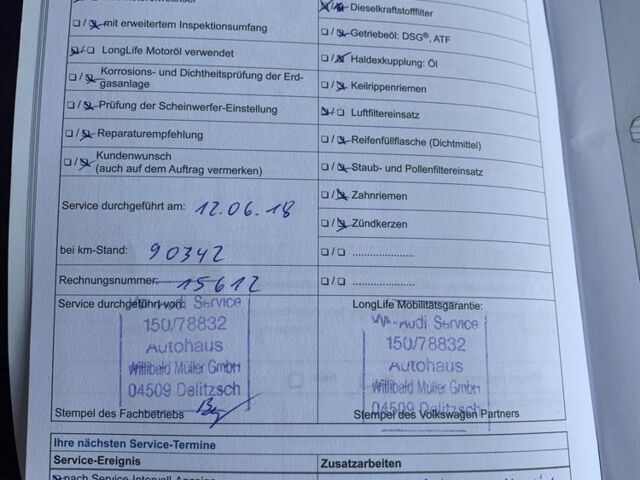 Dieselkraftstofffilter
mit erweitertem Inspektionsumfang
Getriebeöl: DSG®, ATF
LongLife Motoröl verwendet
Haldexkupplung: Öl
Korrosions- und Dichtheitsprüfung der Erd-
gasanlage
Keilrippenriemen
Prüfung der Scheinwerfer-Einstellung
Luftfiltereinsatz
Reparaturempfehlung
Reifenfüllflasche (Dichtmittel)
Kundenwunsch
(auch auf dem Auftrag vermerken)
Staub- und Pollenfiltereinsatz
Zahnriemen
Service durchgeführt am: 12.06.18
Zündkerzen
bei km-Stand: 90342
.....................
Rechnungsnummer: 15612
.....................
Service durchgeführt von:
LongLife Mobilitätsgarantie:
Audi Service
150/78832
Autohaus
Willibald Müller GmbH
04509 Delitzsch
Audi Service
150/78832
Autohaus
Willibald Müller GmbH
04509 Delitzsch
Stempel des Fachbetriebs
Stempel des Volkswagen Partners
Ihre nächsten Service-Termine
Service-Ereignis
Zusatzarbeiten
nach Service-Intervall-Anzeige